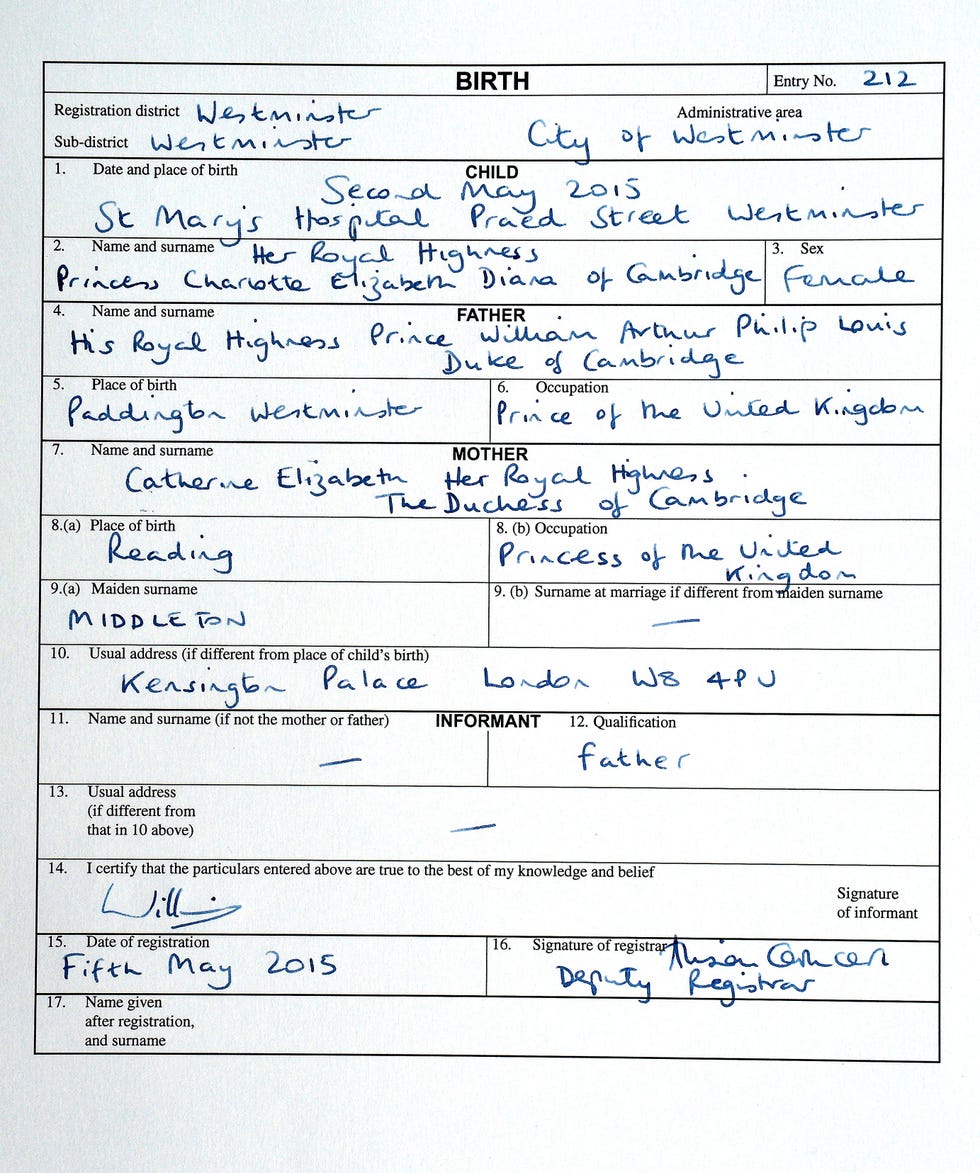 BIRTH
Entry No. 212
Registration district Westminster
Administrative area
Sub-district Westminster
City of Westminster
1. Date and place of birth
CHILD
Second May 2015
St Mary's Hospital Praed Street Westminster
2. Name and surname
Her Royal Highness
Princess Charlotte Elizabeth Diana of Cambridge
3. Sex
Female
4. Name and surname
FATHER
His Royal Highness Prince William Arthur Philip Louis
Duke of Cambridge
5. Place of birth
Paddington Westminster
6. Occupation
Prince of the United Kingdom
7. Name and surname
MOTHER
Catherine Elizabeth Her Royal Highness
The Duchess of Cambridge
8.(a) Place of birth
Reading
8. (b) Occupation
Princess of the United
Kingdom
9.(a) Maiden surname
MIDDLETON
9. (b) Surname at marriage if different from maiden surname
—
10. Usual address (if different from place of child's birth)
Kensington Palace London W8 4PU
11. Name and surname (if not the mother or father)
INFORMANT
—
12. Qualification
father
13. Usual address
(if different from
that in 10 above)
—
14. I certify that the particulars entered above are true to the best of my knowledge and belief
Signature
of informant
15. Date of registration
Fifth May 2015
16. Signature of registrar
Deputy Registrar
17. Name given
after registration,
and surname